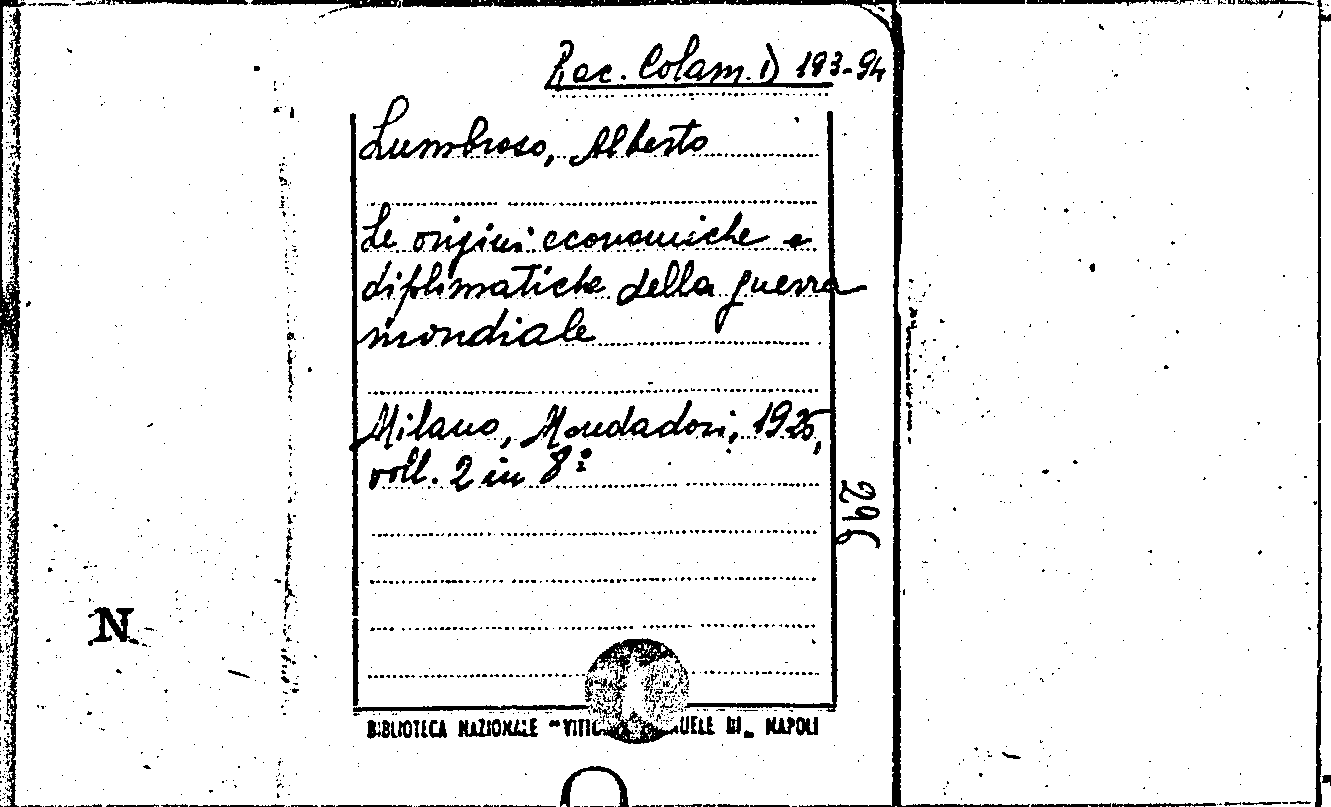 Racc. Colam. D 193-94
Lumbroso, Alberto
Le origini economiche e
diplomatiche della guerra
mondiale
Milano, Mondadori, 1926,
voll. 2 in 8º
296
N
BIBLIOTECA NAZIONALE "VITTO UELE III" NAPOLI